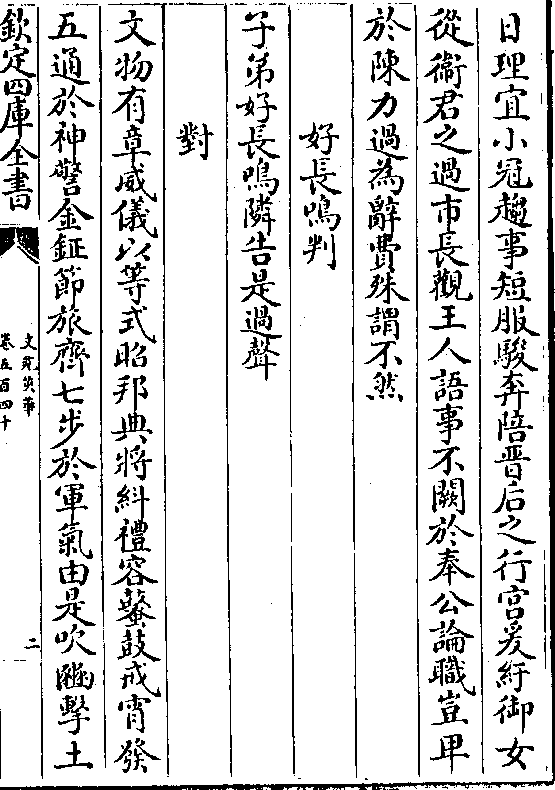 日理宜小冠趨事短服駿奔陪晋后之行宫爰紆御女
從衞君之過市長觀王人語事不闕於奉公論職豈甲
於陳力過為辭費殊謂不然
好長鳴判
子弟好長鳴隣告是過聲
對
文物有章威儀以等式昭邦典將糾禮容鼛鼓戒宵發
五通於神警金鉦節旅齊七步於軍氣由是吹豳擊土
欽定四庫全書
文苑英華
卷五百四十
二